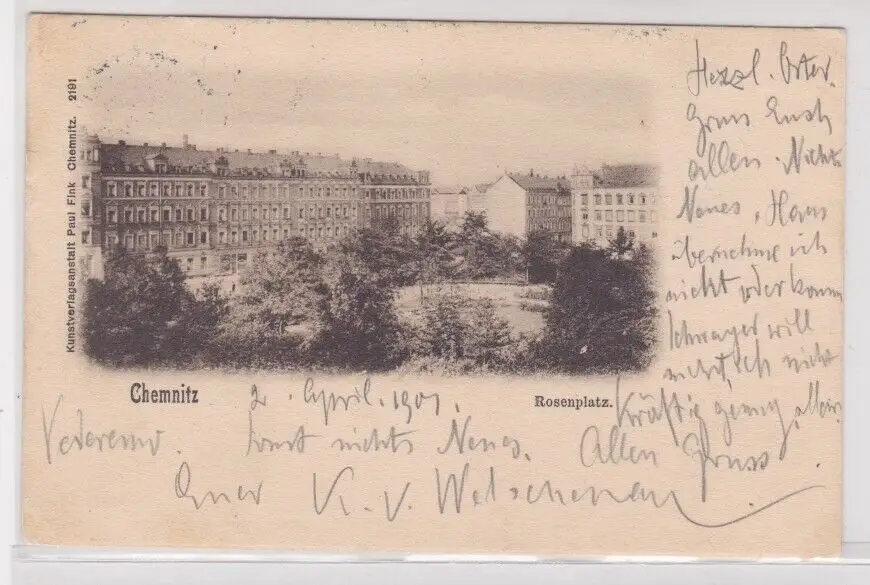 Kunstverlagsanstalt Paul Fink Chemnitz. 2191
Chemnitz
Rosenplatz.
2. April. 1901.
Herzl. Oster.
Gruss Euch
allen. Nichts
Neues, Haus
übernehme ich
nicht oder kaum
Schwager will
nicht, ich nicht
Kräftig genug
Vederemo. Sonst nichts Neues. Allen Gruss
Euer K. V. Welschenau